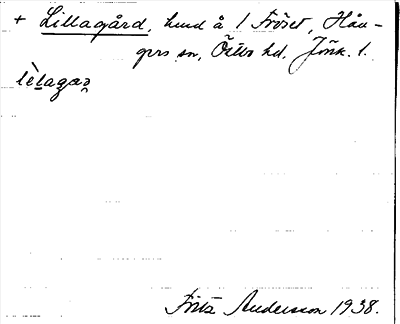 + Lillagård, hemd å 1 Fröset, Håa-
grs sn, Östbo hd. Jönk. l.
lèlagaɽ
Fritz Andersson 1938.